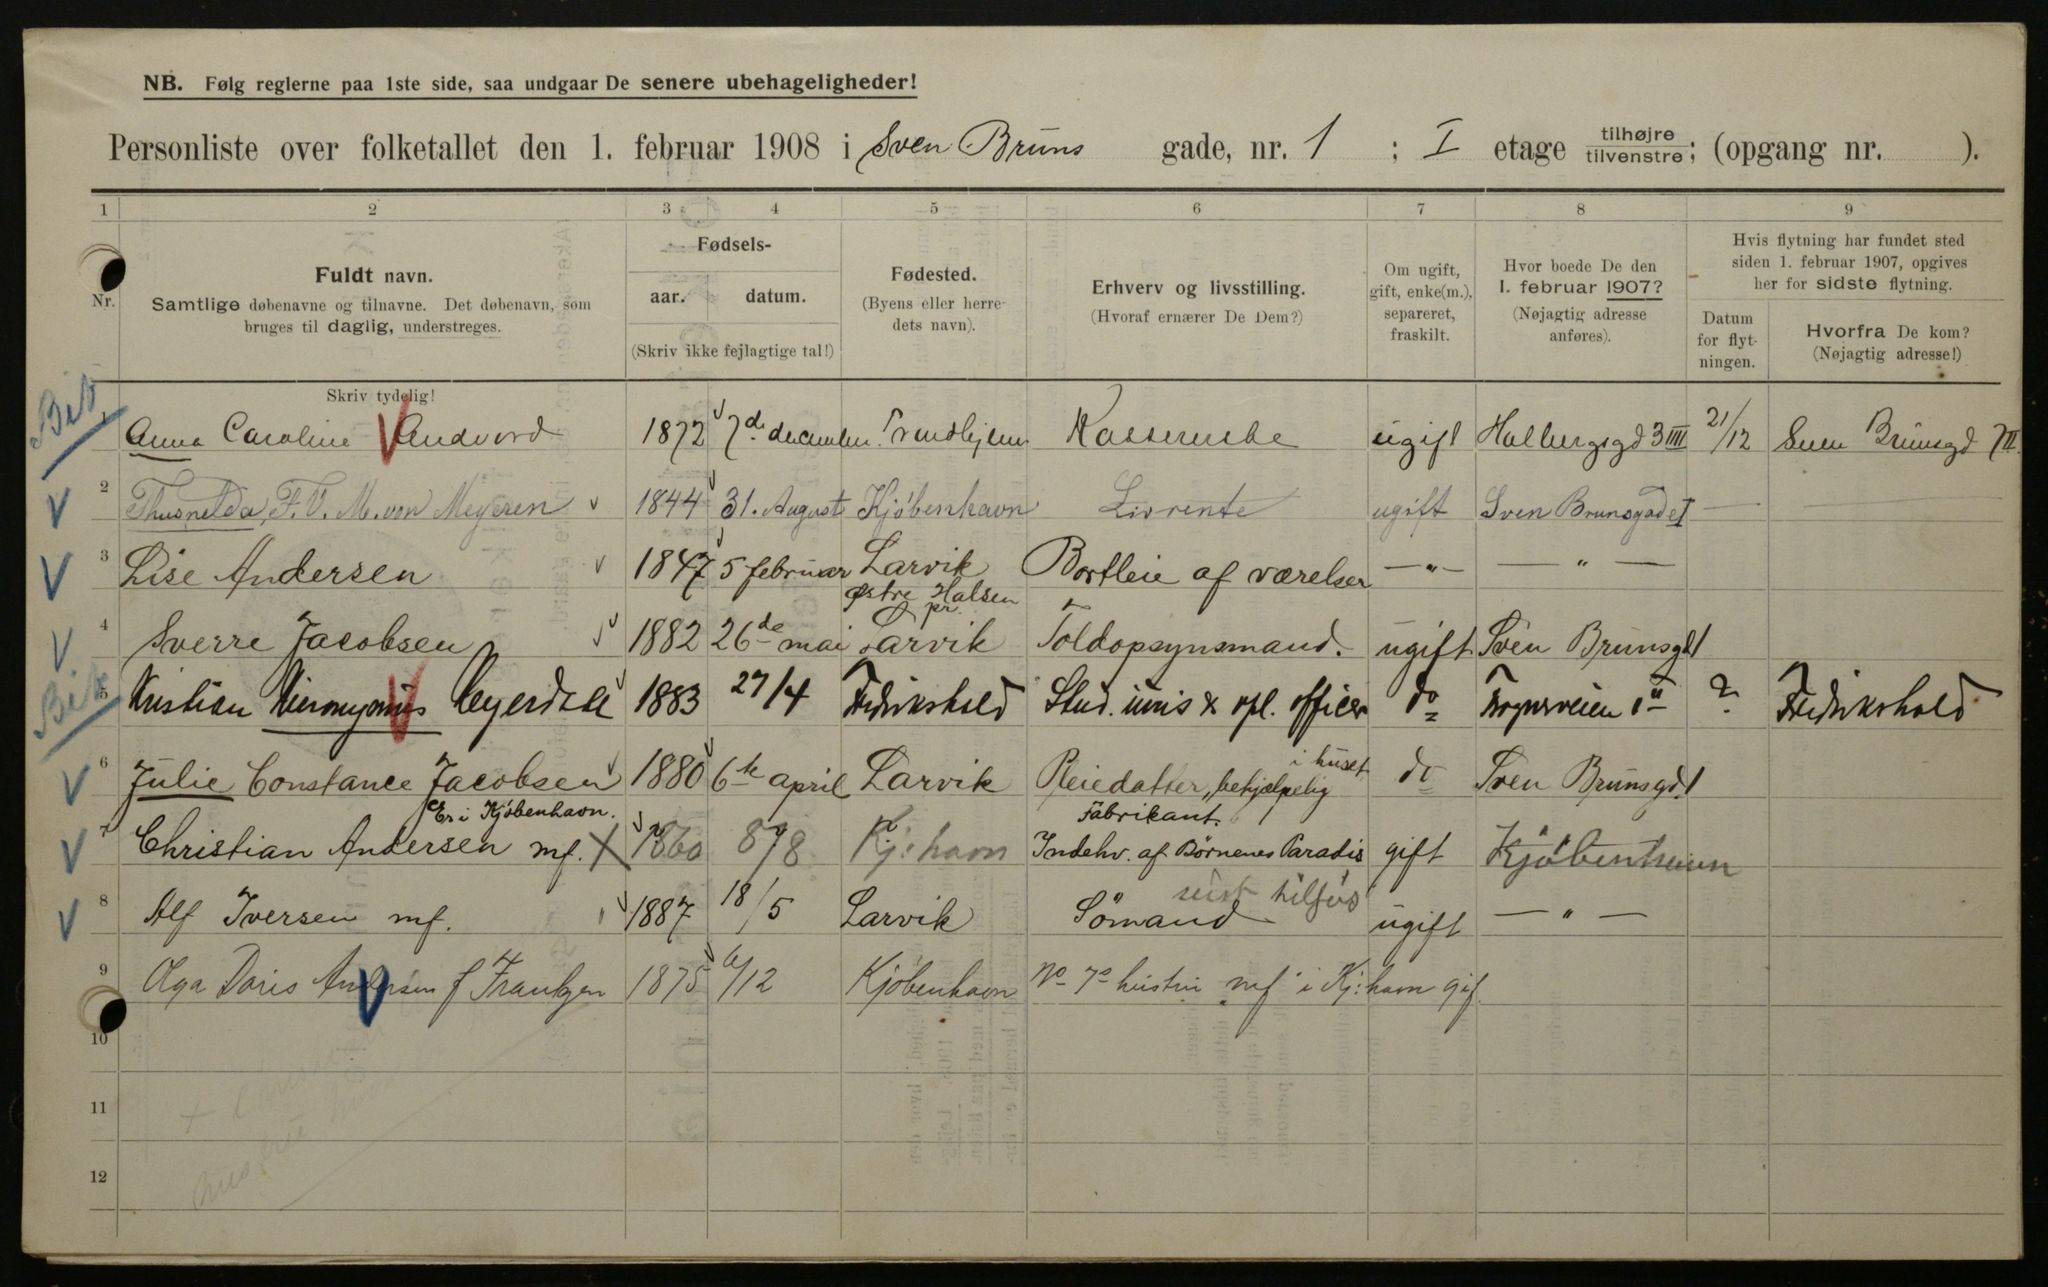 NB. Følg reglerne paa 1ste side, saa undgaar De senere ubehageligheder!
Personliste over folketallet den 1. februar 1908 i Sven Bruns gade, nr. 1 ; I etage tilhøjre/tilvenstre; (opgang nr. ).
1 2 3 4 5 6 7 8 9
Nr.
Fuldt navn.
Samtlige døbenavne og tilnavne. Det døbenavn, som
bruges til daglig, understreges.
Skriv tydelig!
Fødsels-
aar. datum.
(Skriv ikke fejlagtige tal!)
Fødested.
(Byens eller herre-
dets navn).
Erhverv og livsstilling.
(Hvoraf ernærer De Dem?)
Om ugift,
gift, enke(m.),
separeret,
fraskilt.
Hvor boede De den
1. februar 1907?
(Nøjagtig adresse
anføres).
Hvis flytning har fundet sted
siden 1. februar 1907, opgives
her for sidste flytning.
Datum
for flyt-
ningen.
Hvorfra De kom?
(Nøjagtig adresse!)
1 Anna Caroline Andvord 1872 7de december Trondhjem Kasserske ugift Holbergsgd 3 IIII 21/12 Sven Brunsgd 7 II.
2 Thusnelda, F. V. M. von Meyeren 1844 31. August Kjöbenhavn Livrente ugift Sven Brunsgade I — —
3 Lise Andersen 1847 5 februar Larvik Bortleie af værelser — " — — " —
østre Halsen
pr.
4 Sverre Jacobsen 1882 26de mai Larvik Toldopsynsmand. ugift Sven Brunsgd 1
5 Kristian Hieronymus Heyerdahl 1883 27/4 Fredrikshald Stud. juris & vpl. officer do ? Fredrikshald
6 Julie Constance Jacobsen 1880 6te april Larvik Pleiedatter, behjælpelig i huset do Sven Brunsgd. 1
Er i Kjöbenhavn. Fabrikant.
7 Christian Andersen mf. X 1860 8/8 Kj:havn Indehv. af Börnenes Paradis gift Kjöbenhavn
8 Alf Iversen mf. 1887 18/5 Larvik Sömand sist tilsjös ugift — " —
9 Olga Doris Andersen f 1875 6/12 Kjöbenhavn No 7s hustru mf i Kj:havn gif.
10
11
12